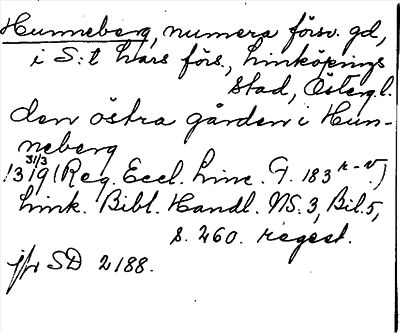 Hunneberg, numera försv. gd,
i S:t Lars förs., Linköpings
stad, Österg.l.
den östra gården i Hun-
neberg
1319 31/3 (Reg. Eccl. Linc. G. 183 r-v.)
Link. Bibl. Handl. NS. 3, Bil. 5,
s. 260. regest.
jfr SD 2188.